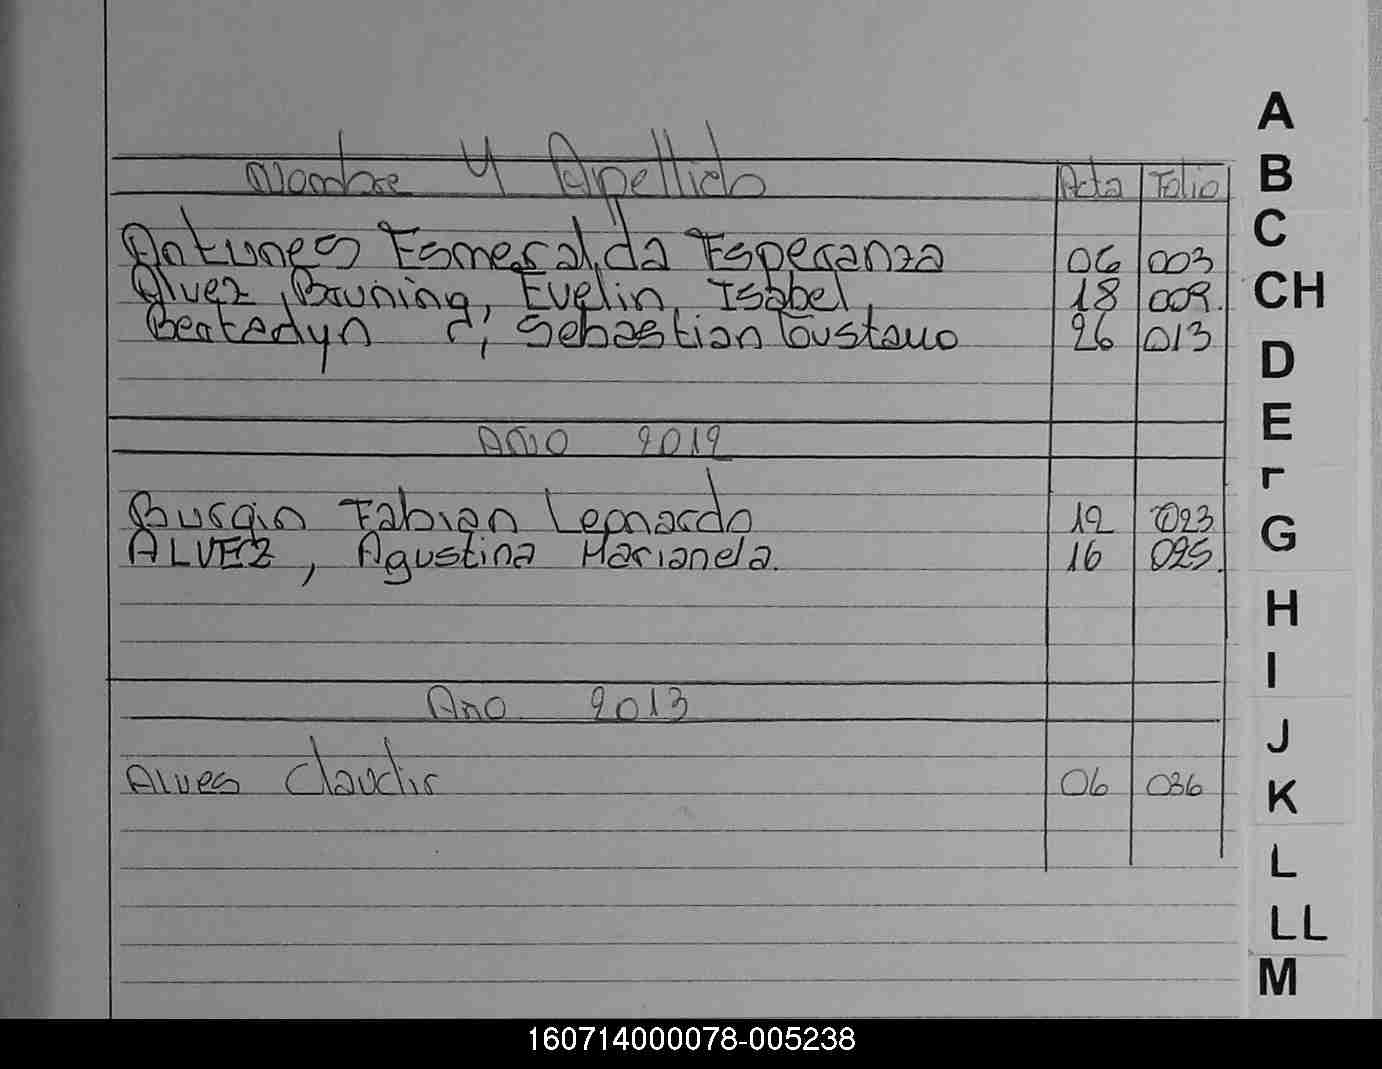 Nombre Y Apellido Acta Folio
Antunes Esmeralda Esperanza 06 003
Alvez, Bruning, Evelin Isabel, 18 009.
Sebastian Gustavo 26 013
Año 2012
Burgin Fabian Leonardo 12 023
ALVEZ, Agustina Marianela. 16 025.
Año 2013
Alves Claudio 06 036
A
B
C
CH
D
E
F
G
H
I
J
K
L
LL
M
160714000078-005238